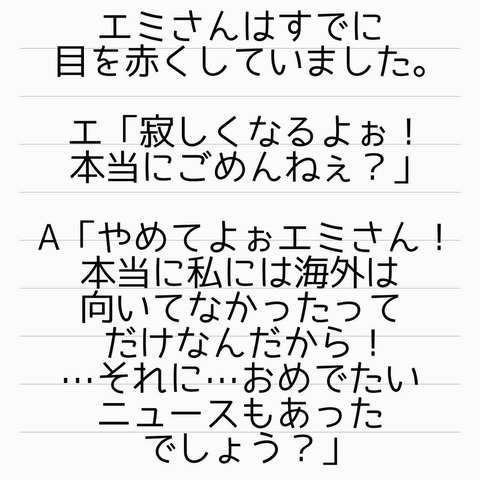 エミさんはすでに
目を赤くしていました。
エ「寂しくなるよぉ！
本当にごめんねぇ？」
A「やめてよぉエミさん！
本当に私には海外は
向いてなかったって
だけなんだから！
…それに…おめでたい
ニュースもあった
でしょう？」